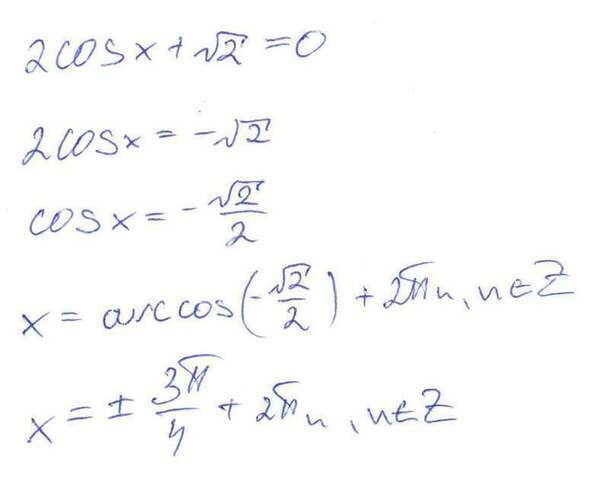 2cosx + √2 = 0
2cosx = -√2
cosx = -√2/2
x = arccos(-√2/2) + 2πn, n∈Z
x = ± 3π/4 + 2πn, n∈Z